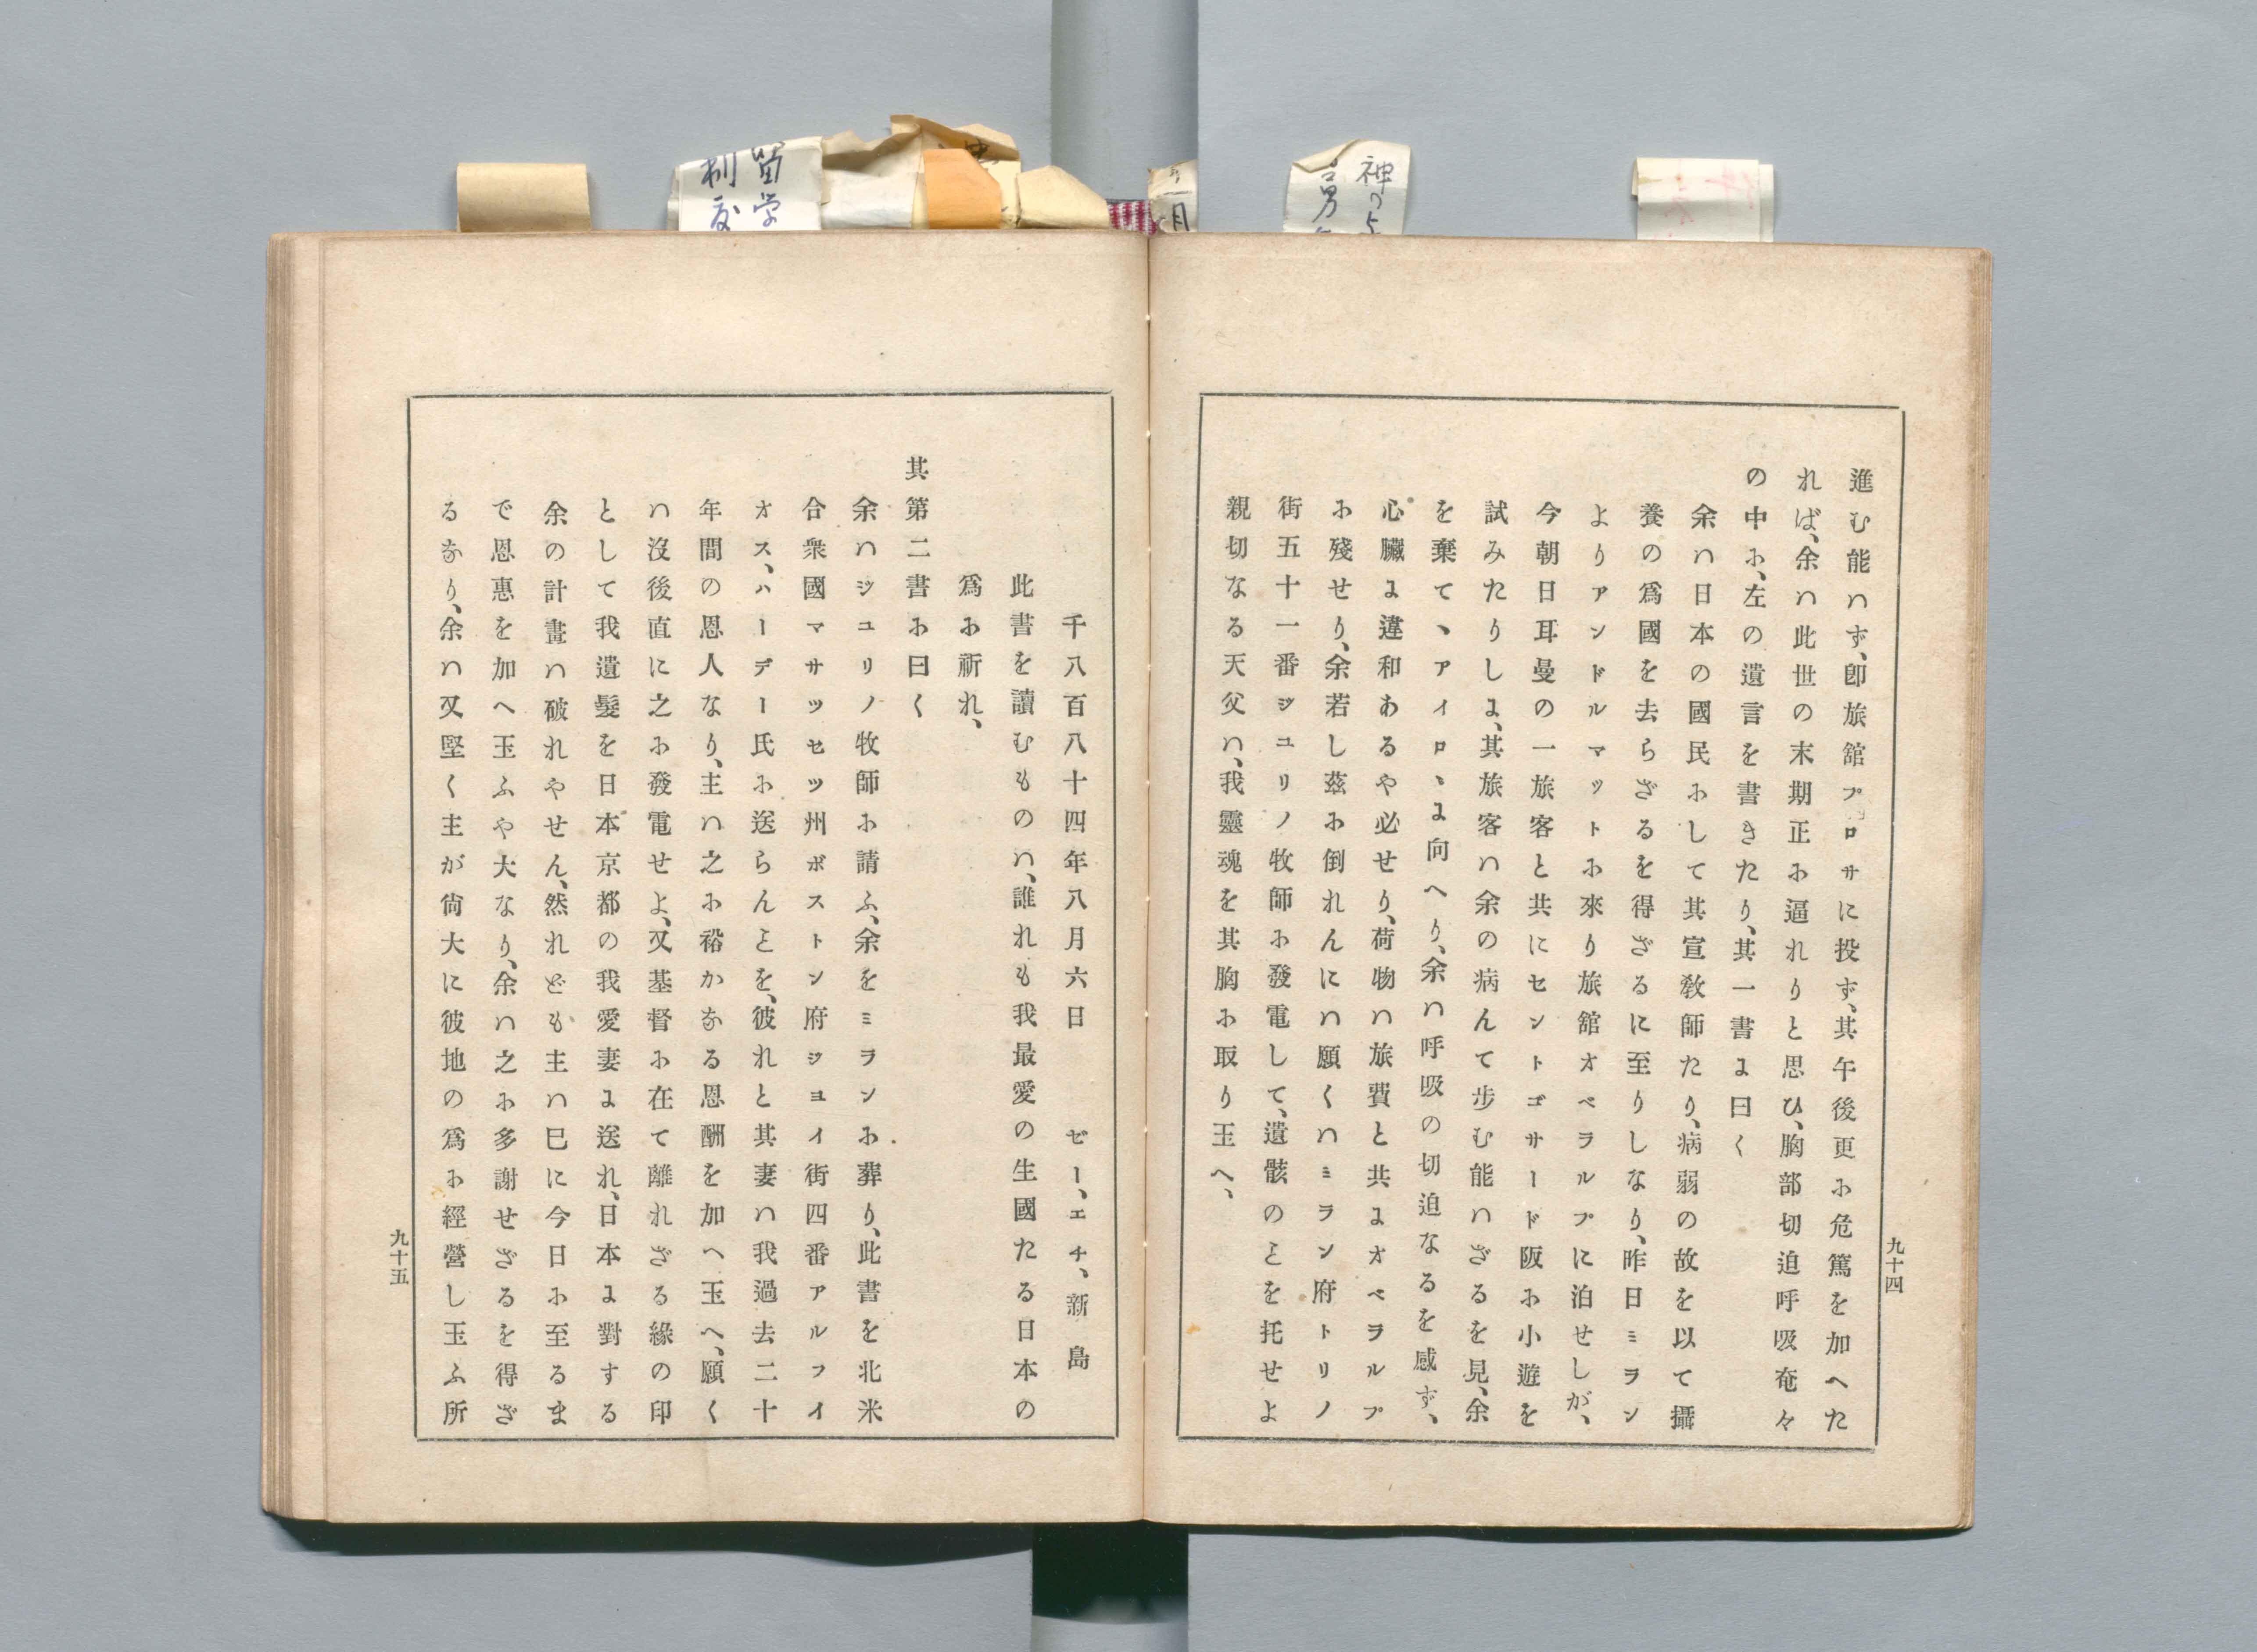 進む能ハず、卽旅舘プロサに投ず、其午後更に危篤を加へた
れば、余ハ此世の末期正に逼れりと思ひ、胸部切迫呼吸奄々
の中に、左の遺言を書きたり、其一書に曰く
余ハ日本の國民にして其宣敎師たり、病弱の故を以て攝
養の爲國を去らざるを得ざるに至りしなり、昨日ミラン
よりアンドルマットに來り旅舘オベラルプに泊せしが、
今朝日耳曼の一旅客と共にセントゴサード阪に小遊を
試みたりしに、其旅客ハ余の病んて步む能ハざるを見、余
を棄てヽアイロヽに向へり、余ハ呼吸の切迫なるを感ず、
心臟に違和あるや必せり、荷物ハ旅費と共にオベラルプ
に殘せり、余若し茲に倒れんにハ願くハミラン府トリノ
街五十一番ジユリノ牧師に發電して、遺骸のことを托せよ
親切なる天父ハ、我靈魂を其胸に取り玉へ、
九十四
千八百八十四年八月六日　ゼー、エチ、新島
此書を讀むものハ、誰れも我最愛の生國たる日本の
爲に祈れ、
其第二書に曰く
余ハジユリノ牧師に請ふ、余をミランに葬り、此書を北米
合衆國マサツセツツ州ボストン府ジヨイ街四番アルフイ
オス、ハーデー氏に送らんことを、彼れと其妻ハ我過去二十
年間の恩人なり、主ハ之に裕かなる恩酬を加へ玉へ、願く
ハ沒後直に之に發電せよ、又基督に在て離れざる緣の印
として我遺髮を日本京都の我愛妻に送れ、日本に對する
余の計畫ハ破れやせん、然れども主ハ已に今日に至るま
で恩惠を加へ玉ふや大なり、余ハ之に多謝せざるを得ざ
るなり、余ハ又堅く主が尙大に彼地の爲に經營し玉ふ所
九十五
留学
神の